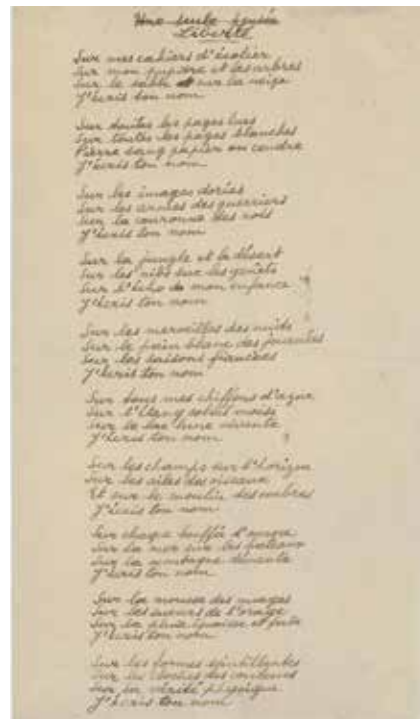 Une seule pensée
Liberté
Sur mes cahiers d'écolier
Sur mon pupitre et les arbres
Sur le sable et sur la neige
J'écris ton nom
Sur toutes les pages lues
Sur toutes les pages blanches
Pierre sang papier ou cendre
J'écris ton nom
Sur les images dorées
Sur les armes des guerriers
Sur la couronne des rois
J'écris ton nom
Sur la jungle et le désert
Sur les nids sur les genêts
Sur l'écho de mon enfance
J'écris ton nom
Sur les merveilles des nuits
Sur le pain blanc des journées
Sur les saisons fiancées
J'écris ton nom
Sur tous mes chiffons d'azur
Sur l'étang soleil moisi
Sur le lac lune vivante
J'écris ton nom
Sur les champs sur l'horizon
Sur les ailes des oiseaux
Et sur le moulin des ombres
J'écris ton nom
Sur chaque bouffée d'aurore
Sur la mer sur les bateaux
Sur la montagne démente
J'écris ton nom
Sur la mousse des nuages
Sur les sueurs de l'orage
Sur la pluie épaisse et fade
J'écris ton nom
Sur les formes scintillantes
Sur les cloches des couleurs
Sur la vérité physique
J'écris ton nom